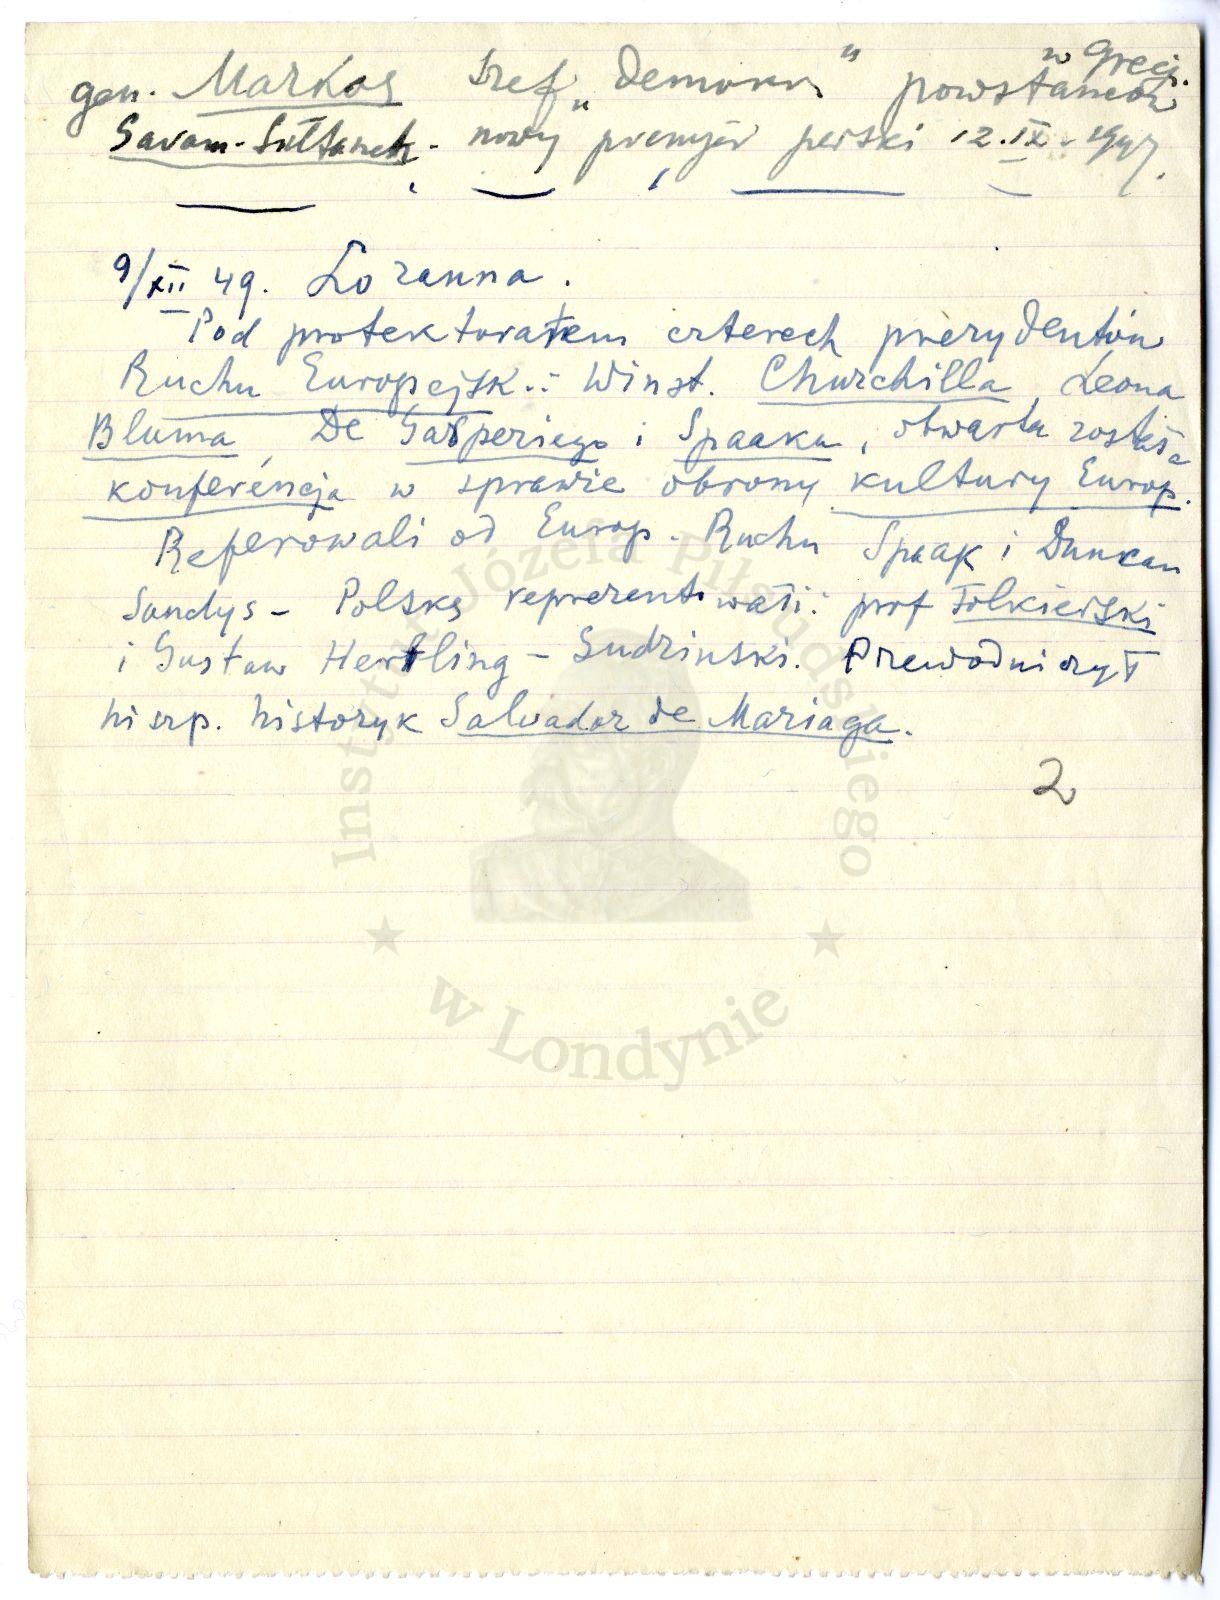 gen. Markos szef „Demokr." powstańców w Grecji.
Savam-Sultaneh - nowy premjer perski 12.IX.1947.
9/XII 49. Lozanna.
Pod protektoratem czterech prezydentów
Ruchu Europejsk.: Winst. Churchilla, Leona
Bluma, De Gasperiego i Spaaka, otwarta została
konferencja w sprawie obrony kultury Europ.
Referowali od Europ. Ruchu Spaak i Dunkan
Sandys - Polskę reprezentowali: prof Folkierski
i Gustaw Herling - Gudzinski. Przewodniczył
hiszp. historyk Salvador de Mariaga.
2
Instytut Józefa Piłsudskiego
w Londynie